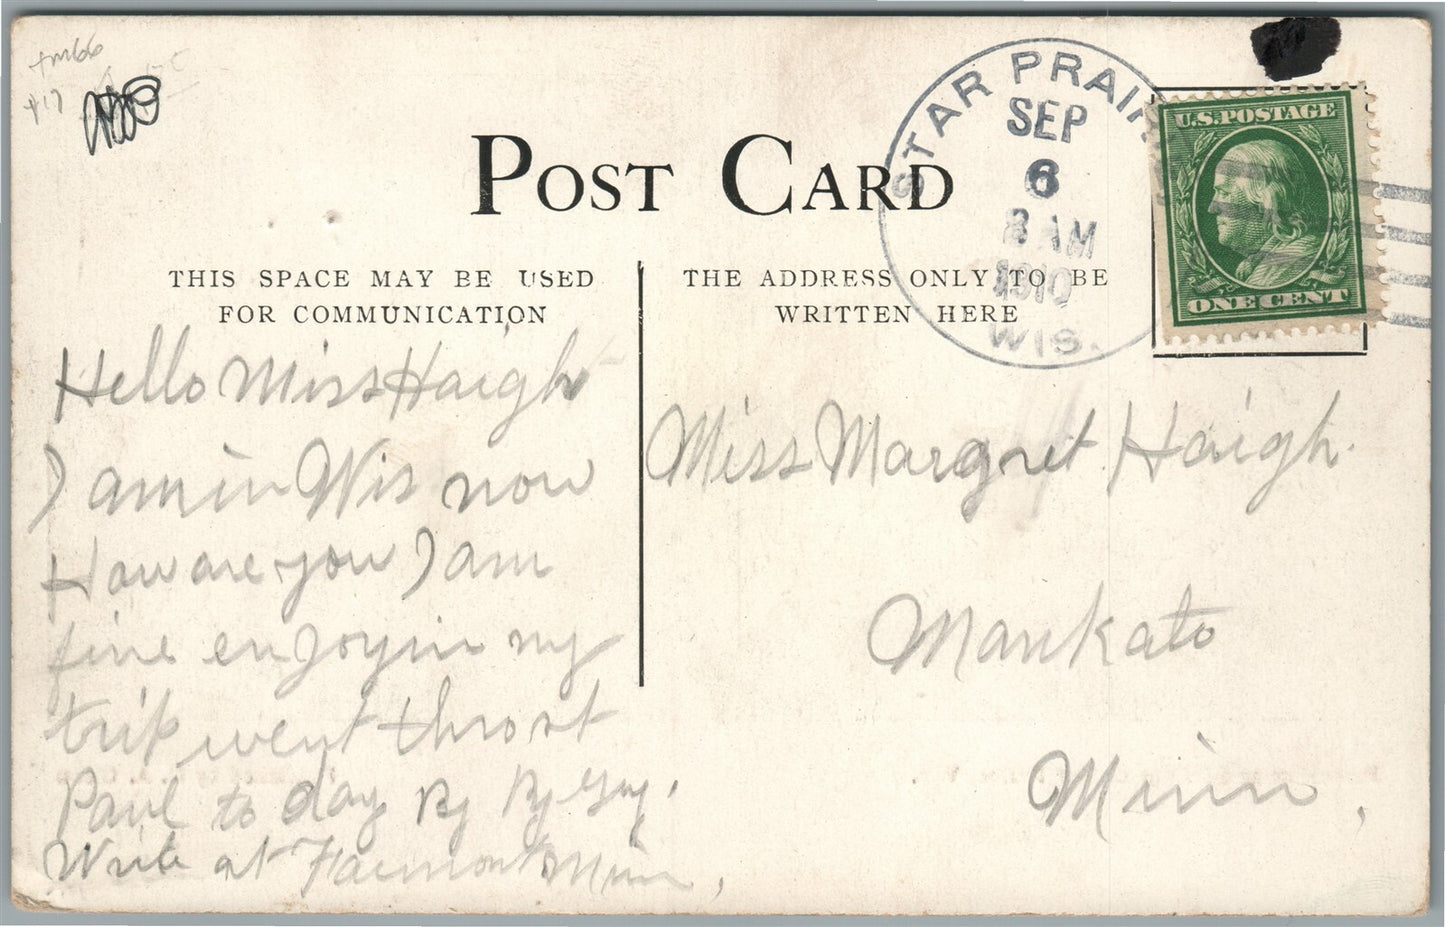 POST CARD
THIS SPACE MAY BE USED
FOR COMMUNICATION
THE ADDRESS ONLY TO BE
WRITTEN HERE
STAR PRAIRI
SEP
6
8 AM
1910
WIS.
U.S. POSTAGE
ONE CENT
Hello Miss Haigh
I am in Wis now
How are you I am
fine enjoyin my
trip went thro st
Paul to day By By
Write at Fairmont Minn,
Miss Margret Haigh.
Mankato
Minn,